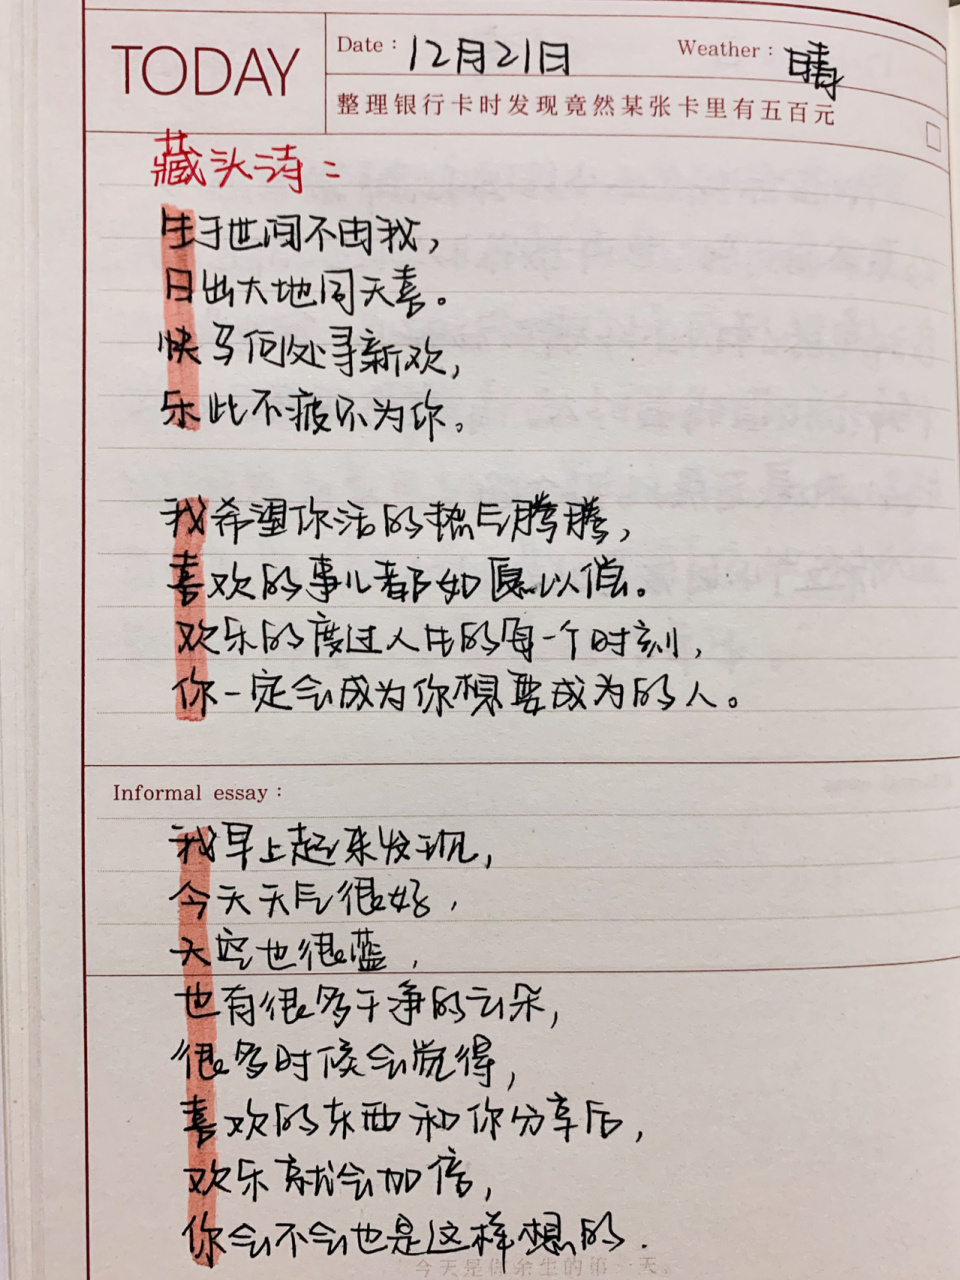 TODAY
Date： 12月21日 Weather： 晴
整理银行卡时发现竟然某张卡里有五百元
藏头诗：
生于世间不由我，
日出大地同天喜。
快马何处寻新欢，
乐此不疲只为你。
我希望你活的热气腾腾，
喜欢的事儿都如愿以偿。
欢乐的度过人生的每一个时刻，
你一定会成为你想要成为的人。
Informal essay：
我早上起来发现，
今天天气很好，
天空也很蓝，
也有很多干净的云朵，
很多时候会觉得，
喜欢的东西和你分享后，
欢乐就会加倍，
你会不会也是这样想的.
今天是你余生的第一天。